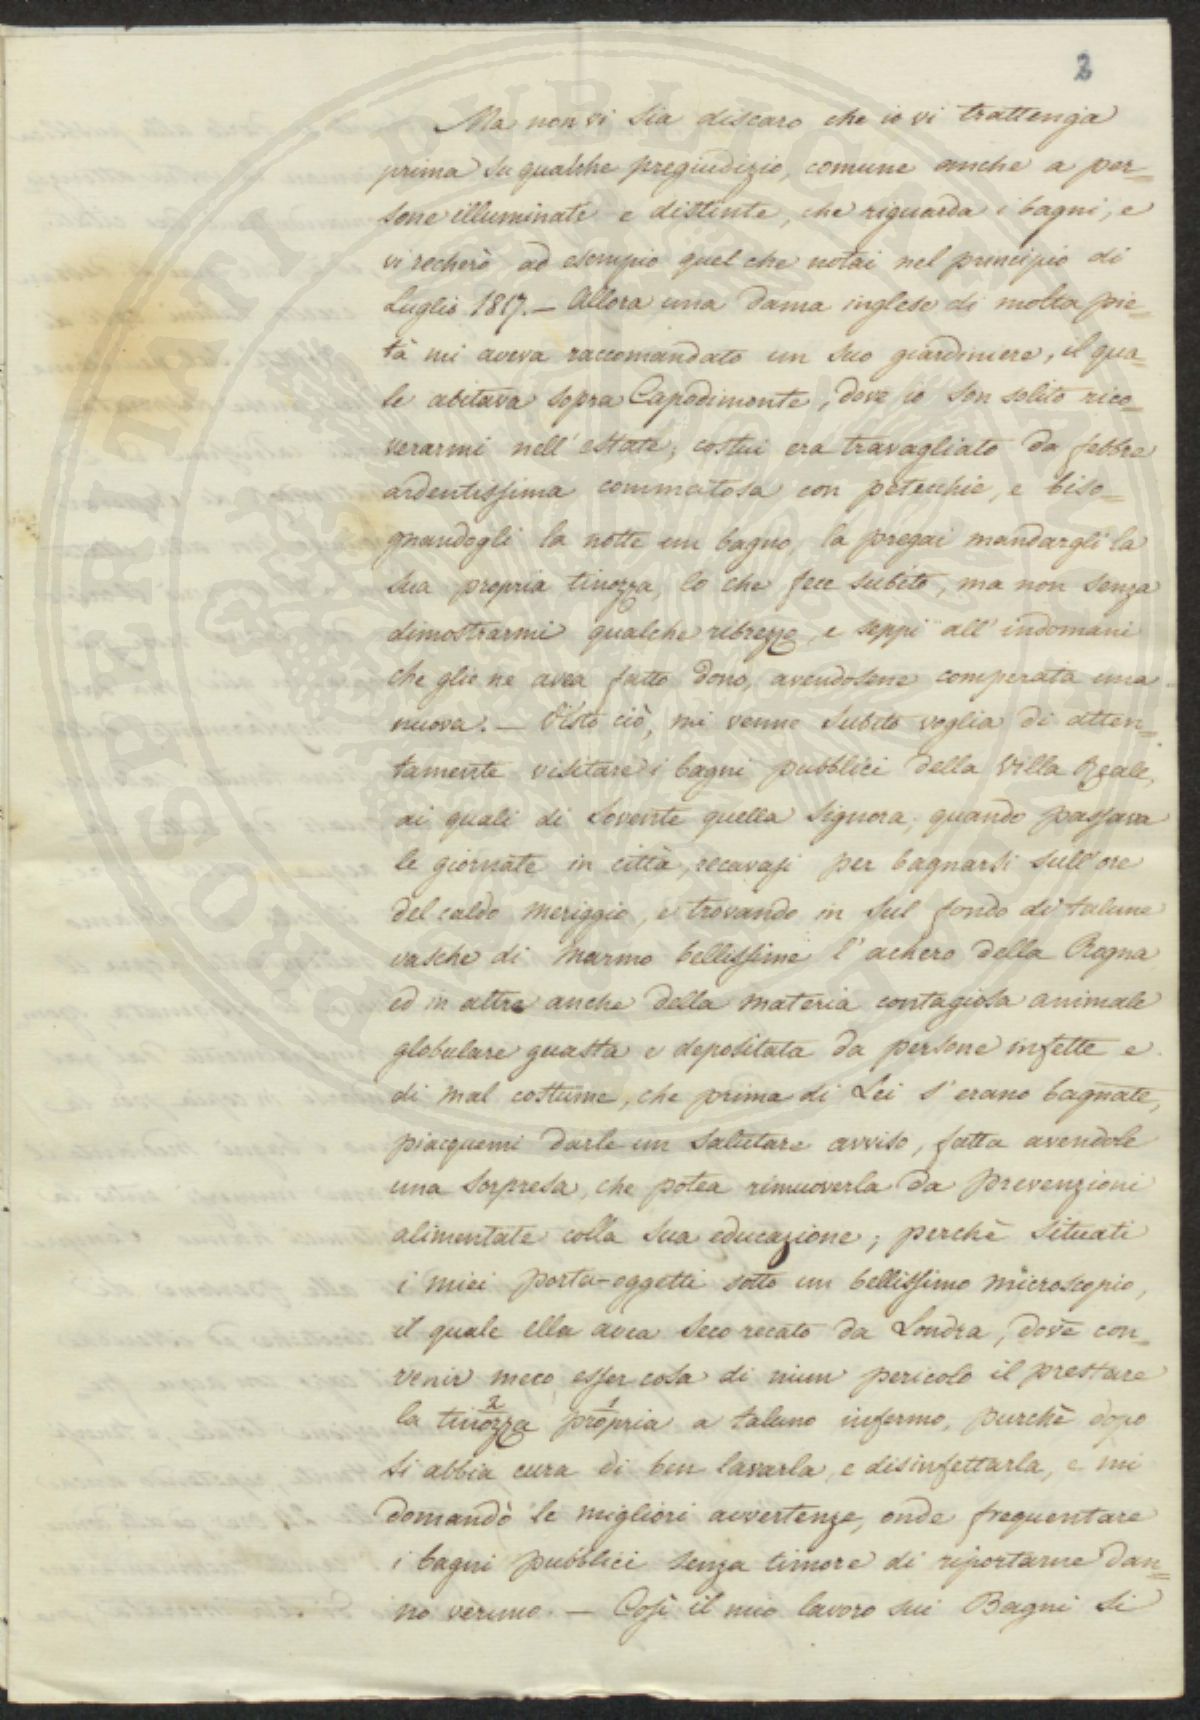 2
Ma non vi sia discaro che io vi trattenga
prima su qualche pregiudizio, comune anche a per=
sone illuminate e distinte, che riguarda i bagni, e
vi recherò ad esempio quel che notai nel principio di
Luglio 1817. — Allora una dama inglese di molta pie=
tà mi aveva raccomandato un suo giardiniere, il qua=
le abitava sopra Capodimonte, dove io son solito rico=
verarmi nell'estate; costui era travagliato da febbre
ardentissima con petecchie, e biso=
gnandogli la notte un bagno, la pregai mandargli la
sua propria tinozza, lo che fece subito, ma non senza
dimostrarmi qualche ribrezzo, e seppi all'indomani
che glie ne avea fatto dono, avendosene comperata una
nuova. — Visto ciò, mi venne subito voglia di atten=
tamente visitare i bagni pubblici della Villa Reale,
ai quali di sovente quella Signora, quando passava
le giornate in città, recavasi per bagnarsi sull'ore
del caldo meriggio, e trovando in sul fondo di talune
vasche di marmo bellissime l'achero della Rogna
ed in altre anche della materia contagiosa animale
globulare guasta e depositata da persone infette e
di mal costume, che prima di Lei s'erano bagnate,
piacquemi darle un salutare avviso, fatta avendole
una sorpresa, che potea rimuoverla da prevenzioni
alimentate colla sua educazione; perchè situati
i miei porta-oggetti sotto un bellissimo microscopio,
il quale ella avea seco recato da Londra, dovè con=
venir meco esser cosa di niun pericolo il prestare
la tinozza propria a taluno infermo, purchè dopo
si abbia cura di ben lavarla, e disinfettarla, e mi
domandò le migliori avvertenze, onde frequentare
i bagni pubblici senza timore di riportarne dan=
no veruno. — Così il mio lavoro sui Bagni si
PROSPERITATI PUBLICAE